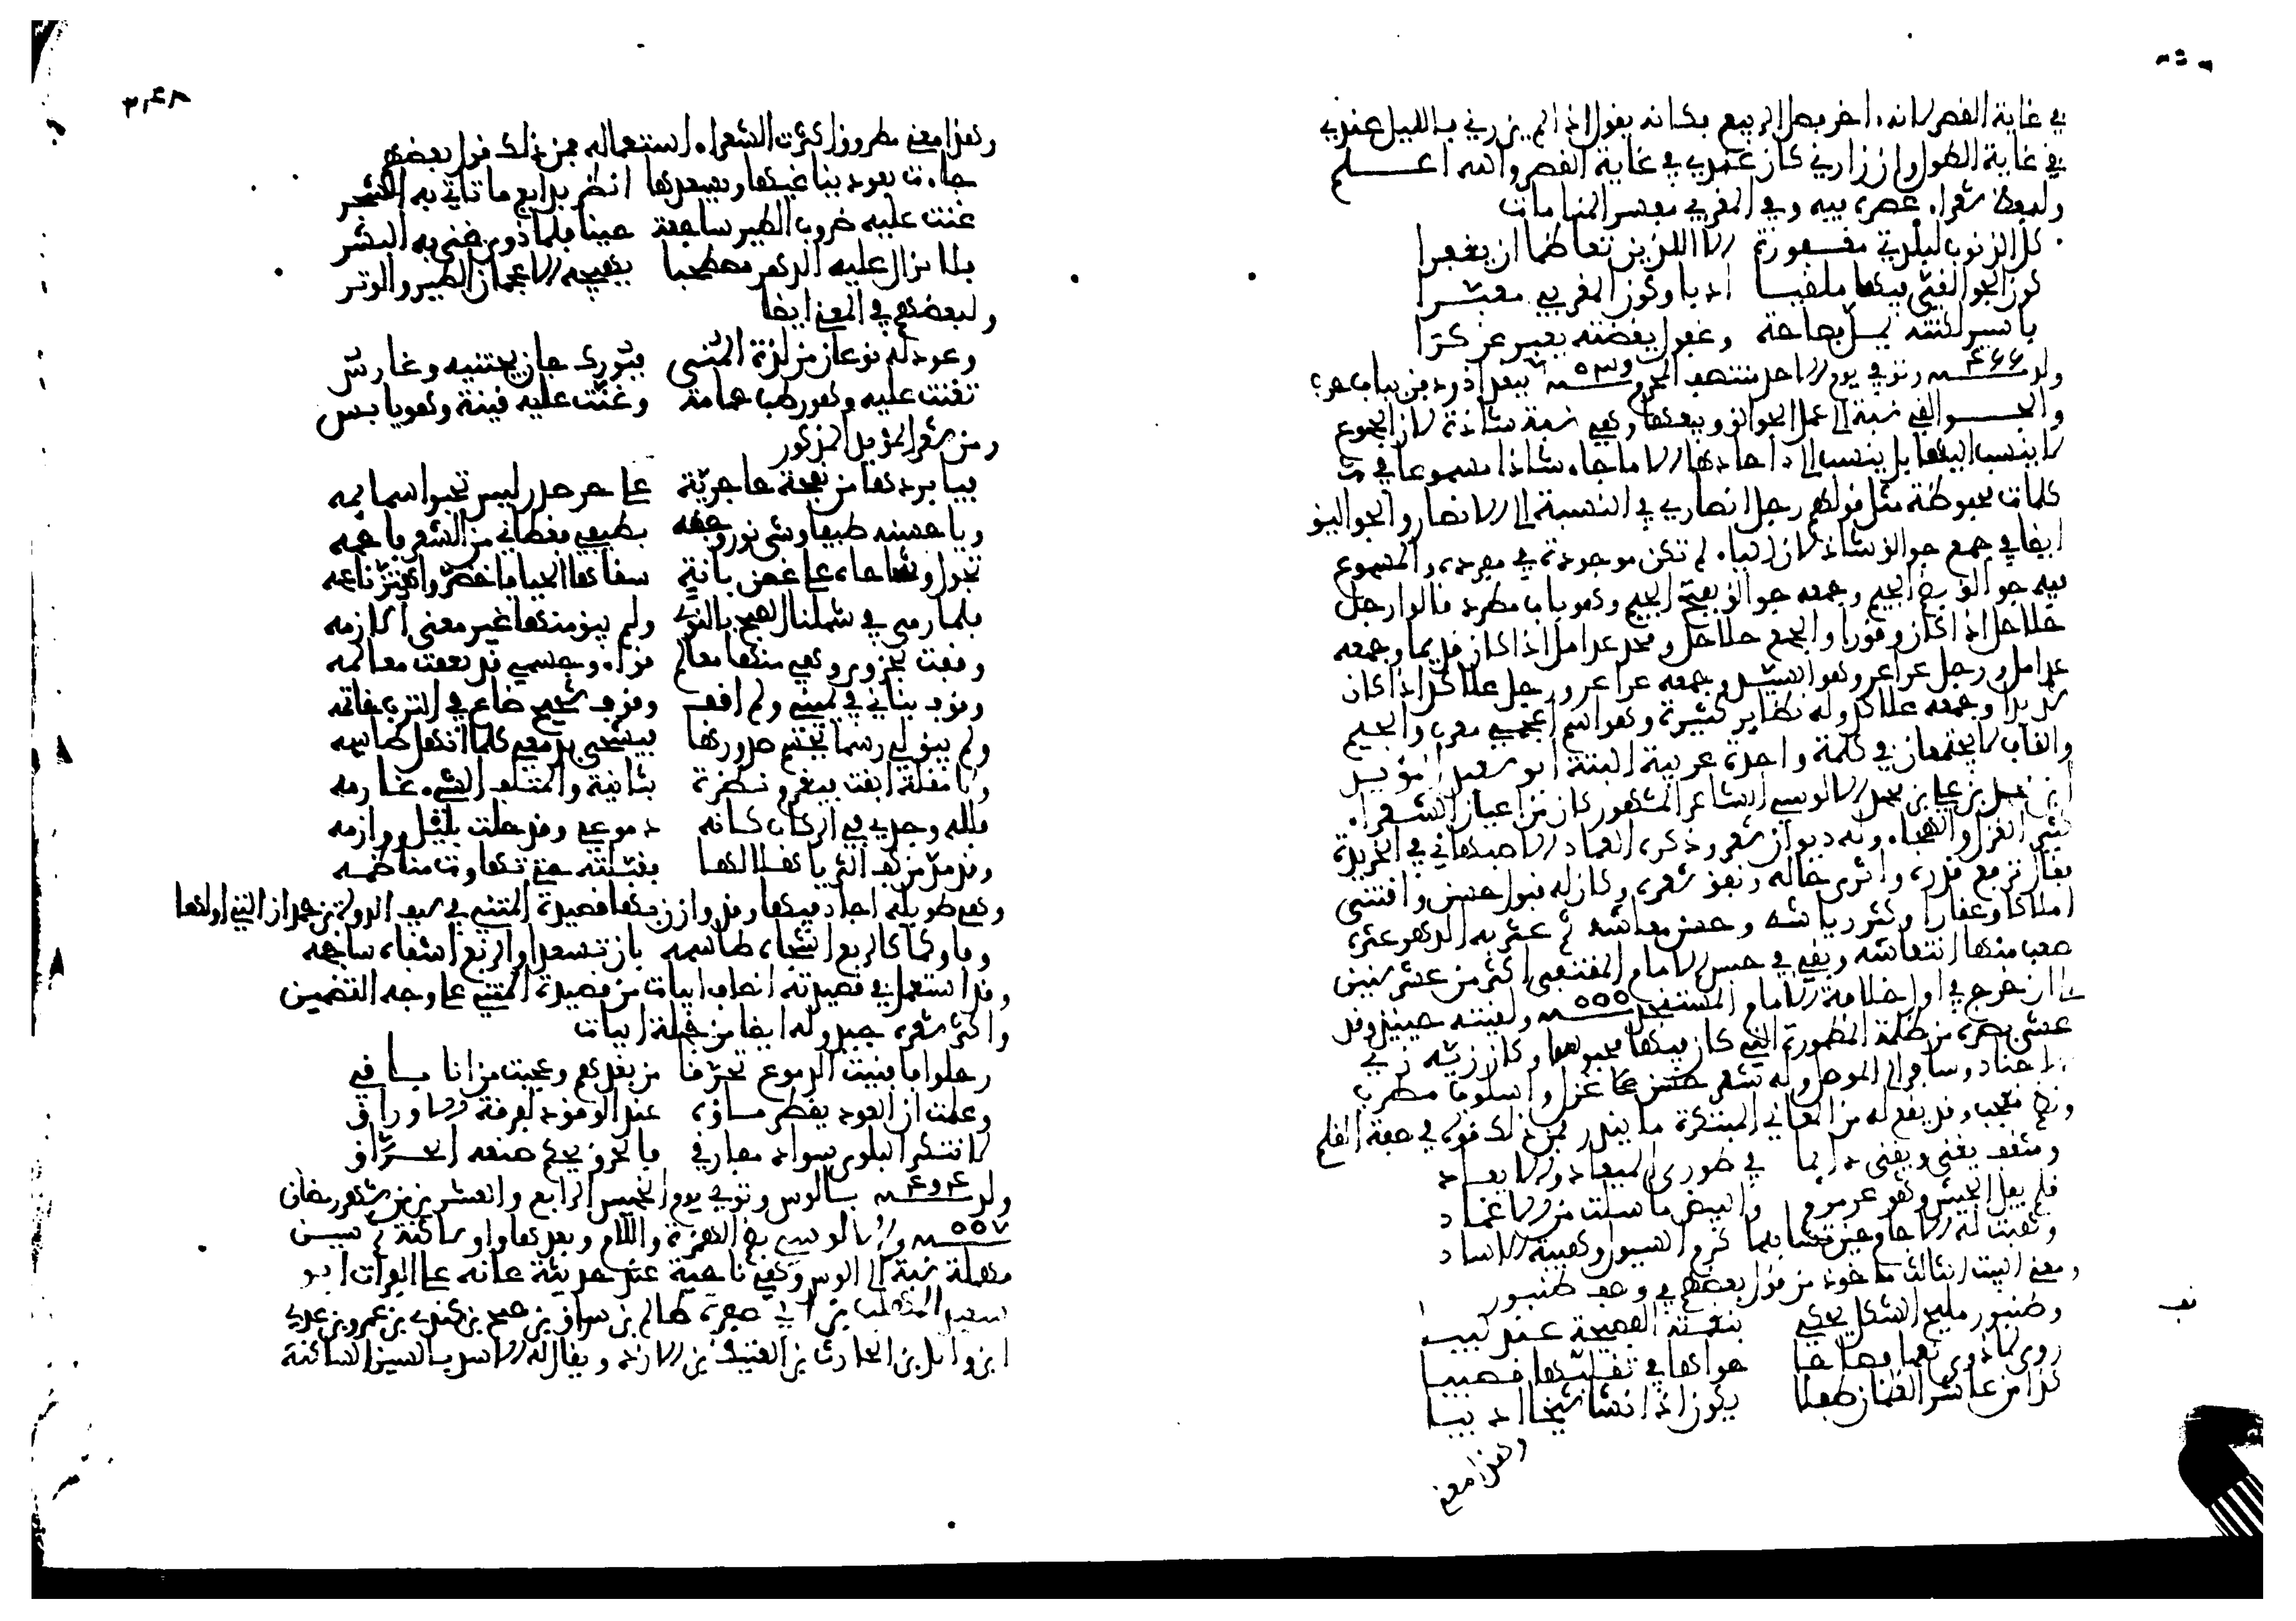 في غاية القصر لانه اخر فصل الربيع فكانه يقول اذا لم يزرني بالليل عندي
في غاية الطول وان زارني كان عندي في غاية القصر والله اعلم
ولبعض شعراء عصره فيه وفي المغربي مفسر المنامات
كل الذنوب لبلدتي مغفورة الا اللذين تعاظما ان يغفرا
كون الجواليقي فيها ملقيا ادبا وكون المغربي معبرا
فاسير لكنته يمل فصاحة وغفول يقظته يعبر عن كرا
ولد ٤٦٦ وتوفي يوم الاحد منتصف المحرم ٥٣٩ ببغداد ودفن بباب حرب
والجواليقي نسبة الى عمل الجوالق وبيعها وهي نسبة شاذة لان الجموع
لا ينسب اليها بل ينسب الى احادها الا ما جاء شاذا مسموعا في
كلمات محفوظة مثل قولهم رجل انصاري في النسبة الى الانصار والجواليق
ايضا في جمع جوالق شاذ لان الياء لم تكن موجودة في مفرده والمسموع
فيه جوالق بضم الجيم وجمعه جوالق بفتح الجيم وهو باب مطرد قالوا رجل
حلاحل اذا كان وقورا والجمع حلاحل وشجر عدامل اذا كان قديما وجمعه
عدامل ورجل عراعر وهو السيد وجمعه عراعر ورجل علاكد اذا كان
شديدا وجمعه علاكد وله نظاير كثيرة وهو اسم اعجمي معرب والجيم
والقاف لا يجتمعان في كلمة واحدة عربية البتة ابو سعيد المؤيد
ابن محمد بن علي بن محمد الالوسي الشاعر المشهور كان من اعيان الشعراء
كثير الغزل والهجاء وله ديوان شعر وذكره العماد الاصبهاني في الخريدة
فقال ترفع قدره واثرى حاله ونفق شعره وكان له قبول حسن واقتنى
املاكا وعقارا وكثر رياشه وحسن معاشه ثم عثر به الدهر عثرة
صعب منها انتعاشه وبقي في حبس الامام المقتفي اكثر من عشر سنين
الى ان خرج في اول خلافة الامام المستنجد ٥٥٥ ولقيته حينئذ وقد
عشي بصره من ظلمة المطمورة التي كان فيها محبوسا وكان زيه زي
الاجناد وسافر الى الموصل وله شعر حسن غزل واسلوب مطرب
ونظم معجب وقد يقع له من المعاني المبتكرة ما يندر فمن ذلك قوله في صفة القلم
ومثقف يغني ويفني دائما في طوري الميعاد والايعاد
قلم يفل الجيش وهو عرمرم والبيض ما سلت من الاغماد
وهبت له الاجام حين نشا بها كرم السيول وهيبة الاساد
ومعنى البيت الثالث ماخوذ من قول بعضهم في وصف طنبور
وطنبور مليح الشكل يحكي بنغمته الفصيحة عندليبا
روى لما ذوى نغما فصاحا حواها في تقلبها قضيبا
كذا من عاشر العلماء طفلا يكون اذا نشا شيخا اديبا
وهذا معنى
وهذا معنى مطروز اكثرت الشعراء استعماله فمن ذلك قول بعضهم
جاءت بعود يناغيها ويسعدها انظر بدايع ما تاتي به الشجر
غنت عليه ضروب الطير ساجعة حينا فلما ذوى غنى به البشر
فلا يزال عليه الدهر مصطحبا يهيجه الاعجمان الطير والوتر
ولبعضهم في المعنى ايضا
وعود له نوعان من لذة المنى فبورك جان يجتنيه وغارس
تغنت عليه وهو رطب حمامة وغنت عليه قينة وهو يابس
ومن شعر المؤيد المذكور
فيا بردها من نفحة حاجرية على حر صدر ليس تخبوا سمايمه
ويا حسنه طيفا وشى نور وجهه بطيفي فغطاني من الشعر فاحمه
تجول وشاحاه على غصن بانة سقاها الحيا فاخضر واهتز ناعمه
فلما رمى في شملنا الصبح بالنوى ولم يبق منها غير معنى الازمه
وقفت بجزوى وهي منها معالم قواء وجسمي قد تعفت معالمه
وقوف بناني في يميني ولم اقف وقوف شحيح ضاع في الترب خاتمه
ولم يبق لي رسما بجسم صدودها فيشجي بدمعي كلما انهل ساجمه
ولا مقلة ابقت فيغرو نظرة بثانية والمتلف الشيء غارمه
فلله وجدي في الركاب كانه دموعي وقد حلت بليل روازمه
وقد مد من كف الثريا هلالها فقبلته حتى تهاوت مناظمه
وهي طويلة اجاد فيها وقد وازن بها قصيدة المتنبي في سيف الدولة بن حمدان التي اولها
وفاؤكما كالربع اشجاه طاسمه بان تسعدا والدمع اشفاه ساجمه
وقد استعمل في قصيدته انصاف ابيات من قصيدة المتنبي على وجه التضمين
واكثر شعره جيد وله ايضا من جملة ابيات
رحلوا فافنيت الدموع تحرقا من بعدهم وعجبت من انا باقي
وعلمت ان العود يقطر ماؤه عند الوقود لفرقة الاوراق
لا تنكر البلوى سواد مفارقي فالحزق يحكم صنعة الحراق
ولد ٤٩٤ بالوس وتوفي يوم الخميس الرابع والعشرين من شهر رمضان
٥٥٧ والالوسي بضم الهمزة واللام وبعدها واو ساكنة ثم سين
مهملة نسبة الى الوس وهي ناحية عند حديثة عانة على الفرات ابو
سعيد المهلب بن ابي صفرة ظالم بن سراق بن صبح بن كندي بن عمرو بن عدي
ابن وايل بن الحارث بن العتيك بن الازد ويقال له الاسد بالسين الساكنة